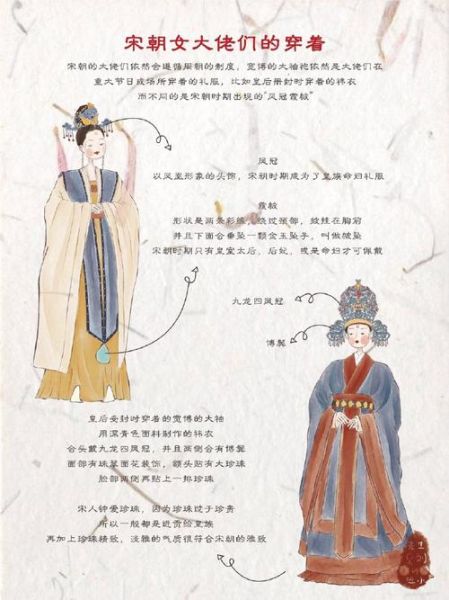 宋朝女大佬们的穿着
宋朝的大佬们依然会遵循周朝的制度，宽博的大袖袍依然是大佬们在
重大节日或场所穿着的礼服，比如皇后册封时穿着的袆衣
而不同的是宋朝时期出现的“凤冠霞帔”
凤冠
以凤凰形象的头饰，宋朝时期成为了皇族命妇礼服
霞帔
形状是两条彩练，绕过颈部，披挂在胸前
并且下面会垂坠一颗金玉坠子，叫做帔坠
宋朝时期只有皇室太后，后妃，或是命妇才可佩戴
九龙四凤冠
博鬓
皇后受封时穿着的宽博的大袖
用深青色面料制作的袆衣
会头戴九龙四凤冠，并且两侧会有博鬓
面部有珠翠面花装饰，额头贴有大珍珠
脸部两侧再贴上一排珍珠
宋人钟爱珍珠，因为珍珠过于珍贵
所以一般都是进贡给皇族
再加上珍珠精致，淡雅的气质很符合宋朝的雅致